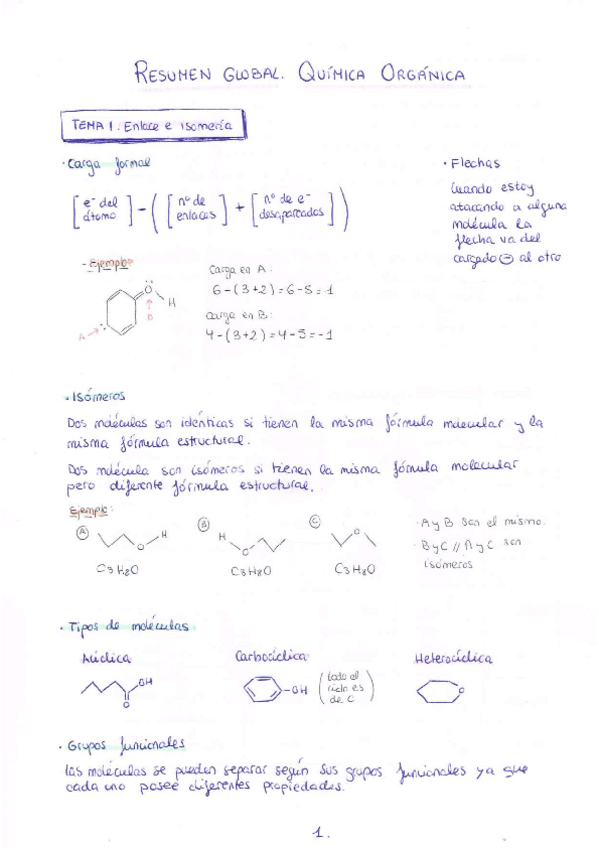 RESUMEN GLOBAL. QUÍMICA ORGÁNICA
TEMA 1. Enlace e isomería
· Carga formal
[e⁻ del átomo] - ([nº de enlaces] + [nº de e⁻ desapareados])
- Ejemplo
O
H
A
B
Carga en A:
6-(3+2)=6-5=1
Carga en B:
4-(3+2)=4-5=-1
· Flechas
Cuando estoy
atacando a alguna
molécula la
flecha va del
cargado ⊖ al otro
· Isómeros
Dos moléculas son idénticas si tienen la misma fórmula molecular y la
misma fórmula estructural.
Dos molécula son isómeros si tienen la misma fórmula molecular
pero diferente fórmula estructural.
Ejemplo:
A
O
H
C3H8O
B
H
O
C3H8O
C
O
C3H8O
· A y B son el mismo.
· B y C // A y C son
isómeros
· Tipos de moléculas
Acíclica
OH
O
Carbocíclica
OH
(todo el
ciclo es
de C)
Heterocíclica
O
· Grupos funcionales
Las moléculas se pueden separar según sus grupos funcionales ya que
cada uno posee diferentes propiedades.
1.